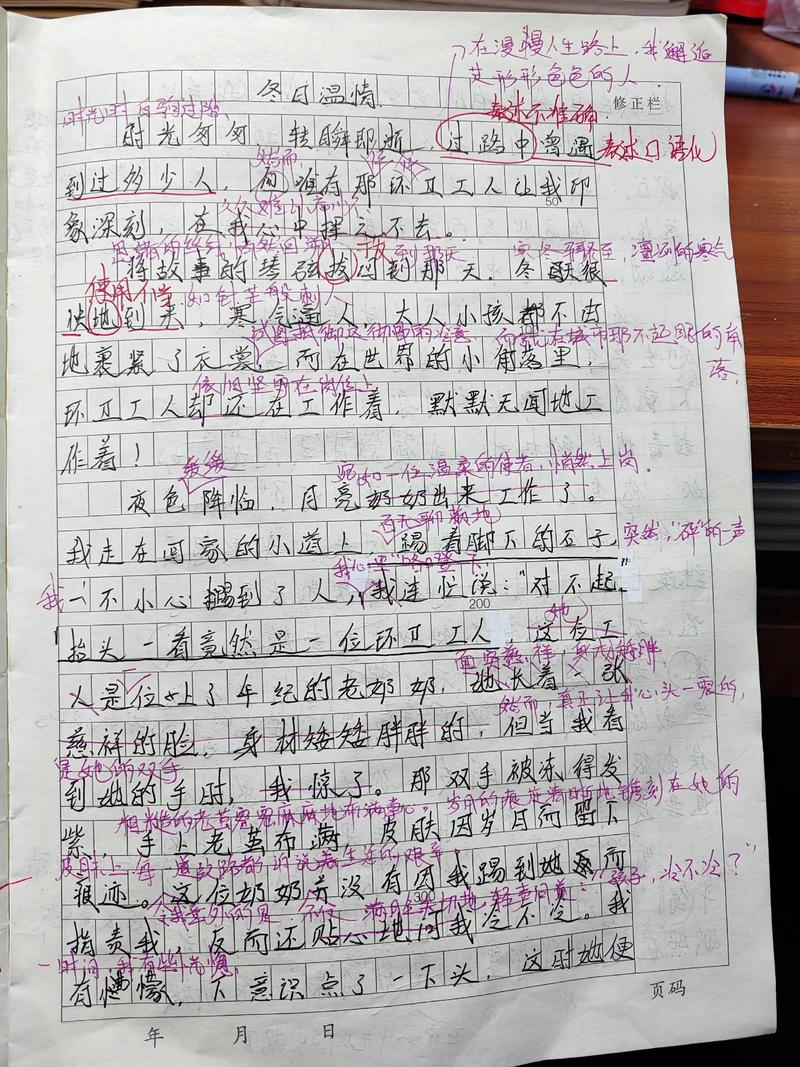 在漫漫人生路上，我邂逅
过形形色色的人
冬日温情
表述不准确
修正栏
时光匆匆，转瞬即逝，过路中曾遇
表述口语化
然而
到过多少人，唯有那环卫工人让我印
50
象深刻，在我心中挥之不去。
拨
到那天
寒冬
凛冽的寒气
将故事的琴弦拨回到那天。冬天狠
使用不当
如针芒般刺人
狠地到来，寒气逼人，大人小孩都不由
试图抵御这彻骨的冷意
而就在城市那不起眼的角
落，
地裹紧了衣裳，而在世界的小角落里，
依旧坚守在岗位上
环卫工人却还在工作着，默默无闻地工
作着！
缓缓
宛如一位温柔的使者，悄然上岗．
夜色降临，月亮奶奶出来工作了。
百无聊赖地
我走在回家的小道上，踢着脚下的石子，
突然，“砰”的一声
我心里“咯噔”一下
我一不小心踢到了人，我连忙说：“对不起．”
200
抬头一看竟然是一位环卫工人，这位工
她
面容慈祥，身材矮胖
人是位上了年纪的老奶奶，她长着一张
然而，真正让我心头一震的，
慈祥的脸，身材矮矮胖胖的，但当我看
是她的双手
到她的手时，我惊了。那双手被冻得发
粗糙的老茧密密麻麻地布满掌心。岁月的痕迹清晰地镌刻在她的
紫，手上老茧布满，皮肤因岁月而留下
皮肤上，每一道纹路都诉说着生活的艰辛．
痕迹。这位奶奶并没有因我踢到她而
令我意外的是
满眼关切地轻声问道：“孩子，冷不冷？”
300
指责我，反而还贴心地问我冷不冷。我
一时间，我有些恍惚，
有懵懵，下意识点了一下头，这时她便
年 月 日
页码